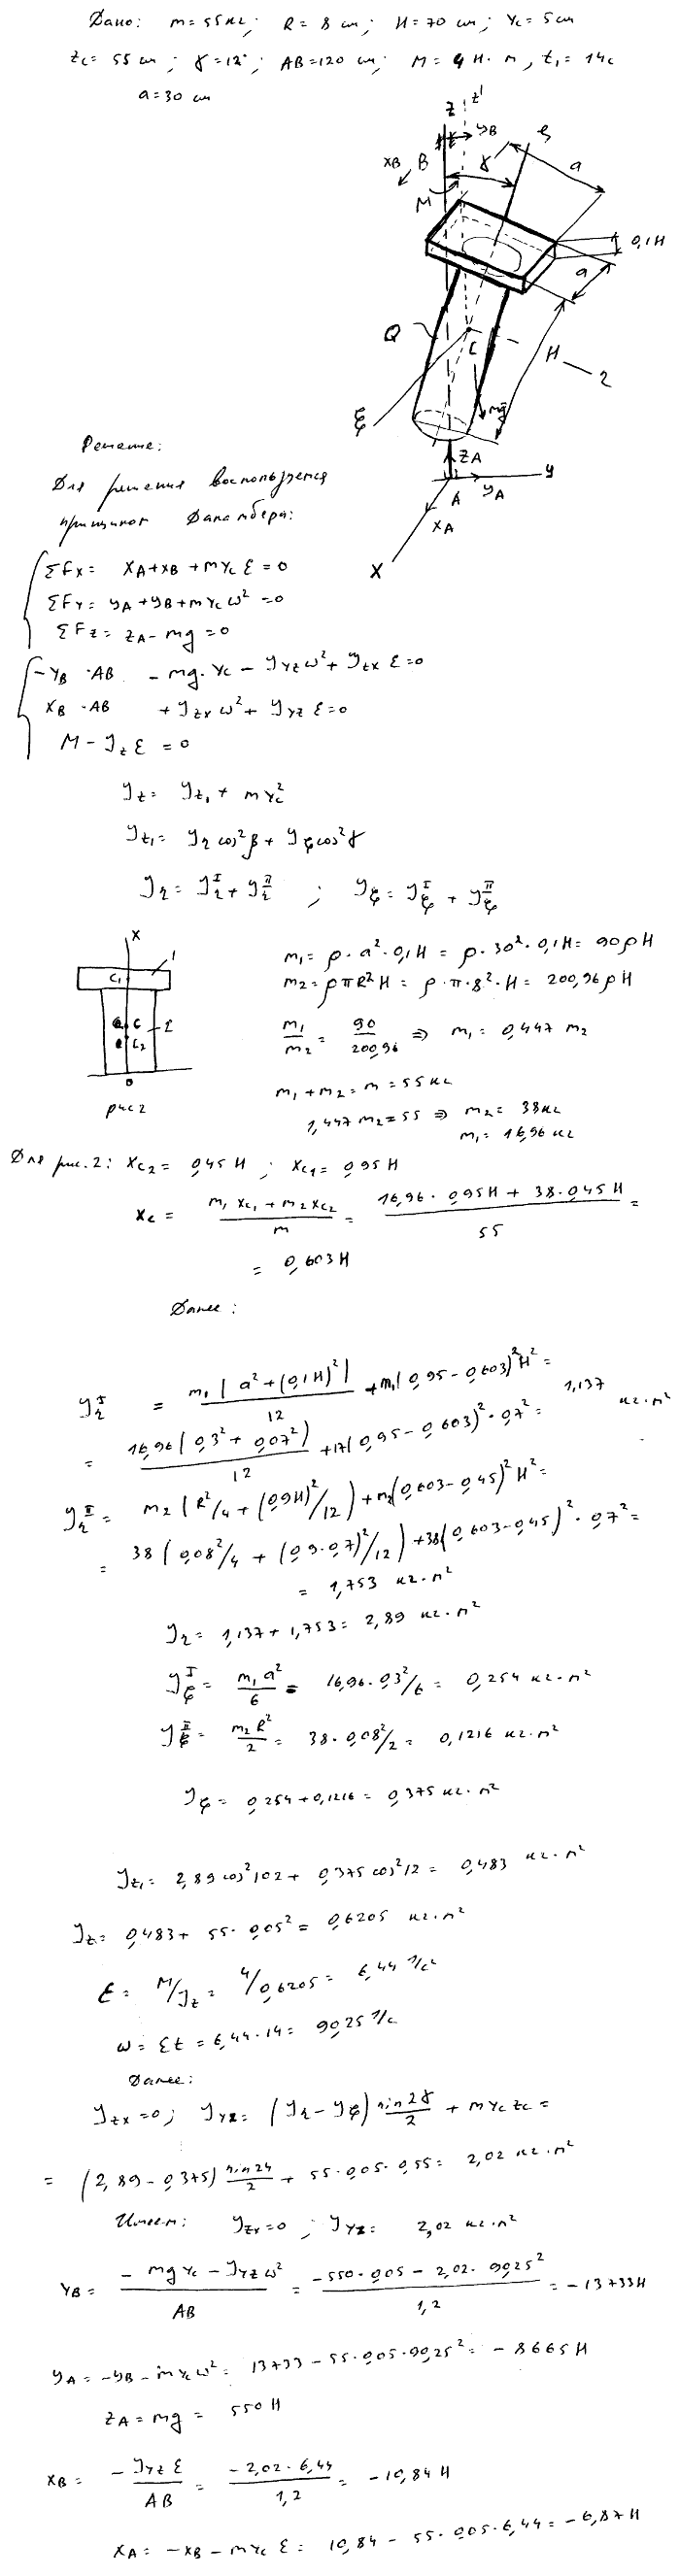 Дано: m=55кг; R=8 см; H=70 см; Yc=5см
Zc=55 см; γ=12°; AB=120 см; M=4 Н·м, t₁=14с
a=30 см
z z'
yB ξ
xB B γ a
M
0,1H
a
Q
C H 2
ξ mg
zA
A yA y
xA
x
Решение:
Для решения воспользуемся
принципом Даламбера:
ΣFx= xA+xB+mYc ε=0
ΣFy= yA+yB+mYc ω²=0
ΣFz= zA-mg=0
-YB·AB - mg·Yc - Jyz ω²+ Jzx ε=0
xB·AB + Jzx ω²+ Jyz ε=0
M-Jz ε=0
Jz= Jz₁+ mYc²
Jz₁= Jη cos²β+ Jξ cos²γ
Jη= JηI+ JηII ; Jξ= JξI + JξII
x
1
C₁
C 2
C₂
0
рис 2
m₁= ρ·a²·0,1H= ρ·30²·0,1H= 90ρH
m₂=ρπR²H= ρ·π·8²·H= 200,96ρH
m₁/m₂= 90/200,96 ⇒ m₁= 0,447 m₂
m₁+m₂=m=55кг
1,447 m₂=55 ⇒ m₂= 38кг
m₁= 16,96 кг
Для рис.2: xc₂= 0,45H; xc₁= 0,95H
xc= (m₁xc₁+m₂xc₂)/m = (16,96·0,95H+38·0,45H)/55 =
= 0,603H
Далее:
JηI = m₁(a²+(0,1H)²)/12 +m₁(0,95-0,603)²H²=
= 16,96(0,3²+0,07²)/12 +17(0,95-0,603)²·0,7²= 1,137 кг·м²
JηII= m₂(R²/4+(0,9H)²/12)+m₂(0,603-0,45)²H²=
= 38(0,08²/4+(0,9·0,7)²/12)+38(0,603-0,45)²·0,7²=
= 1,753 кг·м²
Jη= 1,137+1,753= 2,89 кг·м²
JξI= m₁a²/6= 16,96·0,3²/6= 0,254 кг·м²
JξII= m₂R²/2= 38·0,08²/2= 0,1216 кг·м²
Jξ= 0,254+0,1216= 0,375кг·м²
Jz₁= 2,89cos²102+ 0,375cos²12= 0,483 кг·м²
Jz= 0,483+ 55·0,05²= 0,6205 кг·м²
ε= M/Jz= 4/0,6205= 6,44 1/с²
ω= εt=6,44·14= 90,25 1/с
Далее:
Jzx=0; Jyz= (Jη-Jξ) sin2γ/2 + mYczc=
= (2,89-0,375) sin24/2 + 55·0,05·0,55= 2,02 кг·м²
Имеем: Jzx=0; Jyz= 2,02 кг·м²
YB= (-mgYc-Jyzω²)/AB = (-550·0,05-2,02·90,25²)/1,2 = -13733Н
yA= -yB-mYcω²= 13733-55·0,05·90,25²= -8665Н
zA=mg= 550Н
xB= -Jyz ε/AB = -2,02·6,44/1,2 = -10,84Н
xA= -xB-mYc ε= 10,84-55·0,05·6,44=-6,87Н